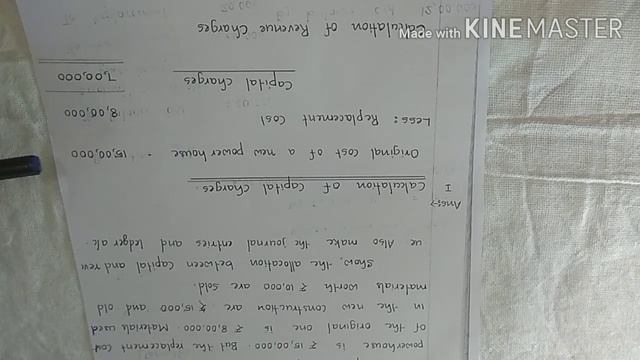 Made with KINEMASTER
powerhouse is ₹ 15,00,000. But the replacement cost
of the original one is ₹ 8,00,000. Materials used
in the new construction are ₹ 15,000 and old
materials worth ₹ 10,000 are sold.
Show, the allocation between Capital and rev
ue Also make the journal entries and ledger a/c.
Ans:-
I Calculation of Capital charges.
Original cost of a new powerhouse - 15,00,000
Less: Replacement Cost 8,00,000
Capital charges 7,00,000
Calculation of Revenue Charges